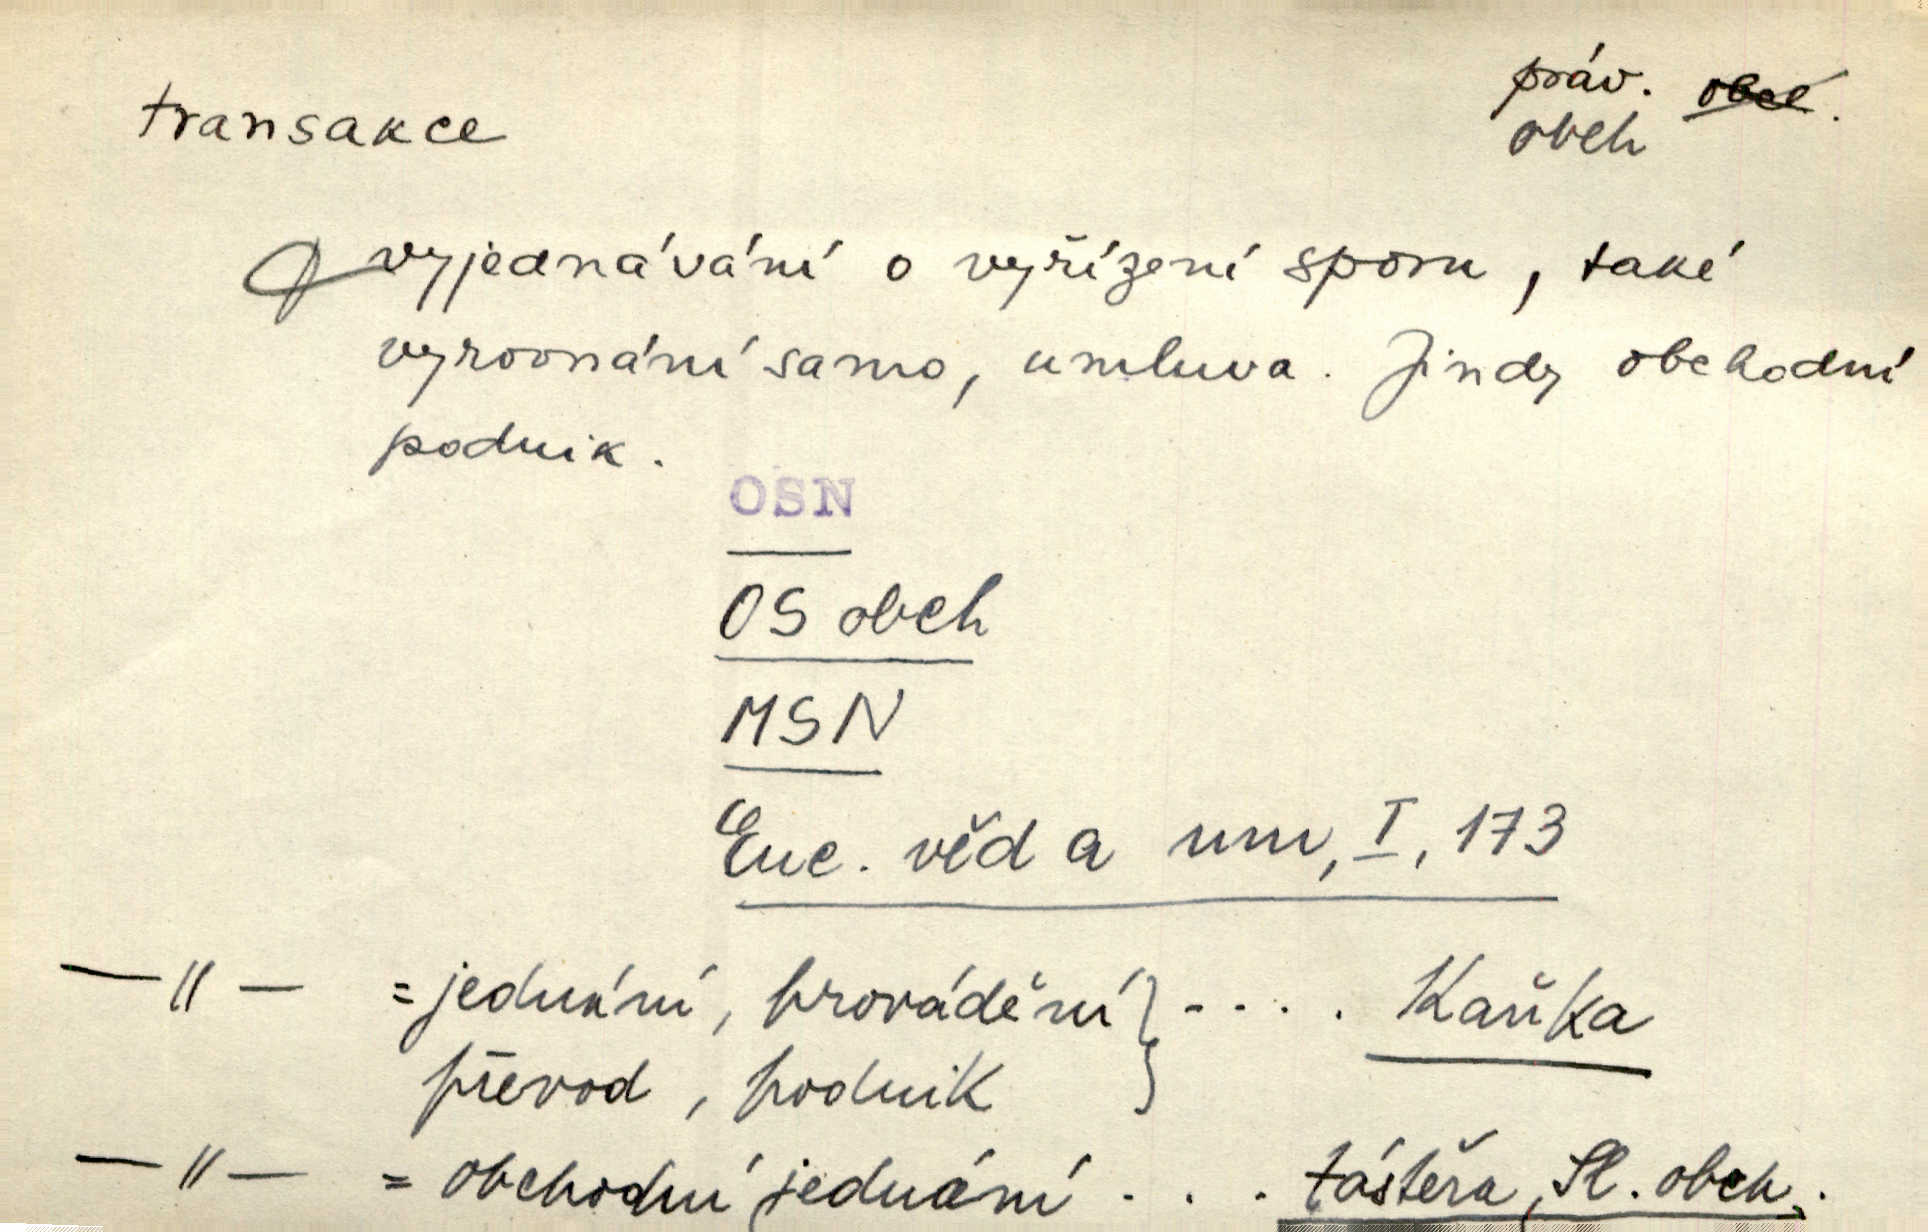 transakce
práv. obch.
obch
vyjednávání o vyřízení sporu, také
vyrovnání samo, umluva. Jindy obchodní
podnik.
OSN
OS obch
MSN
Enc. věd a um, I, 173
—"— = jednání, provádění} - . . . Kaňka
převod, podnik
—"— = obchodní jednání . . . Zástěra, Sl. obch.